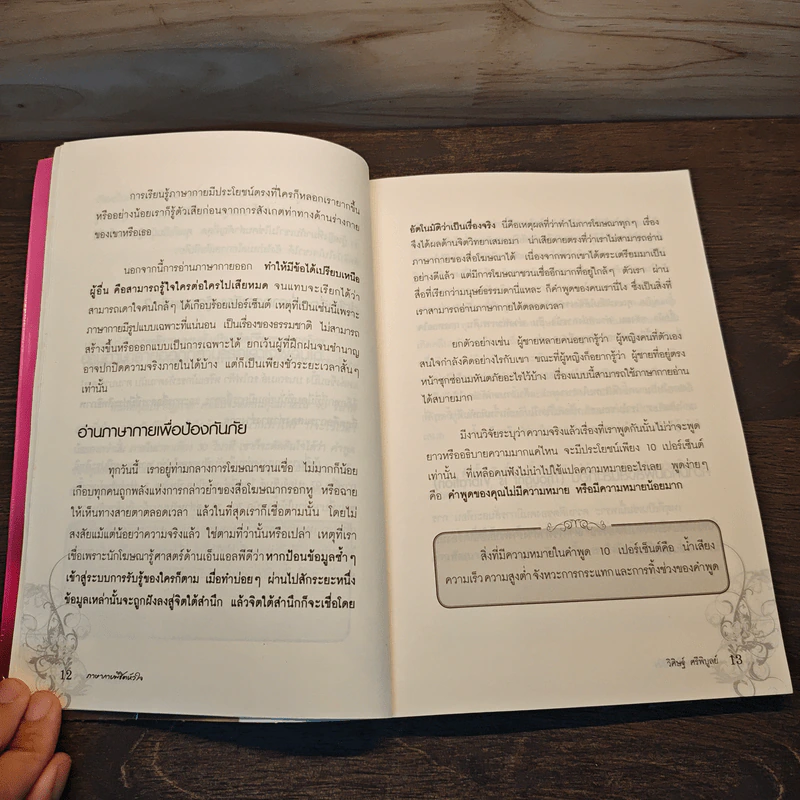 การเรียนรู้ภาษากายมีประโยชน์ตรงที่ใครก็หลอกเรายากขึ้น
หรืออย่างน้อยเราก็รู้ตัวเสียก่อนจากการสังเกตท่าทางด้านร่างกาย
ของเขาหรือเธอ
นอกจากนี้การอ่านภาษากายออก ทำให้มีข้อได้เปรียบเหนือ
ผู้อื่น คือสามารถรู้ใจใครต่อใครไปเสียหมด จนแทบจะเรียกได้ว่า
สามารถเดาใจคนใกล้ๆ ได้เกือบร้อยเปอร์เซ็นต์ เหตุที่เป็นเช่นนี้เพราะ
ภาษากายมีรูปแบบเฉพาะที่แน่นอน เป็นเรื่องของธรรมชาติ ไม่สามารถ
สร้างขึ้นหรือออกแบบเป็นการเฉพาะได้ ยกเว้นผู้ที่ฝึกฝนจนชำนาญ
อาจปกปิดความจริงภายในได้บ้าง แต่ก็เป็นเพียงชั่วระยะเวลาสั้นๆ
เท่านั้น
อ่านภาษากายเพื่อป้องกันภัย
ทุกวันนี้ เราอยู่ท่ามกลางการโฆษณาชวนเชื่อ ไม่มากก็น้อย
เกือบทุกคนถูกพลังแห่งการกล่าวย้ำของสื่อโฆษณากรอกหู หรือฉาย
ให้เห็นทางสายตาตลอดเวลา แล้วในที่สุดเราก็เชื่อตามนั้น โดยไม่
สงสัยแม้แต่น้อยว่าความจริงแล้ว ใช่ตามที่ว่านั้นหรือเปล่า เหตุที่เรา
เชื่อเพราะนักโฆษณารู้ศาสตร์ด้านเอ็นแอลพีดีว่าหากป้อนข้อมูลซ้ำๆ
เข้าสู่ระบบการรับรู้ของใครก็ตาม เมื่อทำบ่อยๆ ผ่านไปสักระยะหนึ่ง
ข้อมูลเหล่านั้นจะถูกฝังลงสู่จิตใต้สำนึก แล้วจิตใต้สำนึกก็จะเชื่อโดย
12 ภาษากายพิชิตหัวใจ
อัตโนมัติว่าเป็นเรื่องจริง นี่คือเหตุผลที่ว่าทำไมการโฆษณาทุกๆ เรื่อง
จึงได้ผลด้านจิตวิทยาเสมอมา น่าเสียดายตรงที่ว่าเราไม่สามารถอ่าน
ภาษากายของสื่อโฆษณาได้ เนื่องจากพวกเขาได้ตระเตรียมมาเป็น
อย่างดีแล้ว แต่มีการโฆษณาชวนเชื่ออีกมากที่อยู่ใกล้ๆ ตัวเรา ผ่าน
สื่อที่เรียกว่ามนุษย์ธรรมดานี่แหละ ก็คำพูดของคนเรานี่ไง ซึ่งเป็นสิ่งที่
เราสามารถอ่านภาษากายได้ตลอดเวลา
ยกตัวอย่างเช่น ผู้ชายหลายคนอยากรู้ว่า ผู้หญิงคนที่ตัวเอง
สนใจกำลังคิดอย่างไรกับเขา ขณะที่ผู้หญิงก็อยากรู้ว่า ผู้ชายที่อยู่ตรง
หน้าซุกซ่อนมหันตภัยอะไรไว้บ้าง เรื่องแบบนี้สามารถใช้ภาษากายอ่าน
ได้สบายมาก
มีงานวิจัยระบุว่าความจริงแล้วเรื่องที่เราพูดกันนั้นไม่ว่าจะพูด
ยาวหรืออธิบายความมากแค่ไหน จะมีประโยชน์เพียง 10 เปอร์เซ็นต์
เท่านั้น ที่เหลือคนฟังไม่นำไปใช้แปลความหมายอะไรเลย พูดง่ายๆ
คือ คำพูดของคุณไม่มีความหมาย หรือมีความหมายน้อยมาก
สิ่งที่มีความหมายในคำพูด 10 เปอร์เซ็นต์คือ น้ำเสียง
ความเร็ว ความสูงต่ำ จังหวะการกระแทก และการทิ้งช่วงของคำพูด
วิศิษฐ์ ศรีพิบูลย์ 13